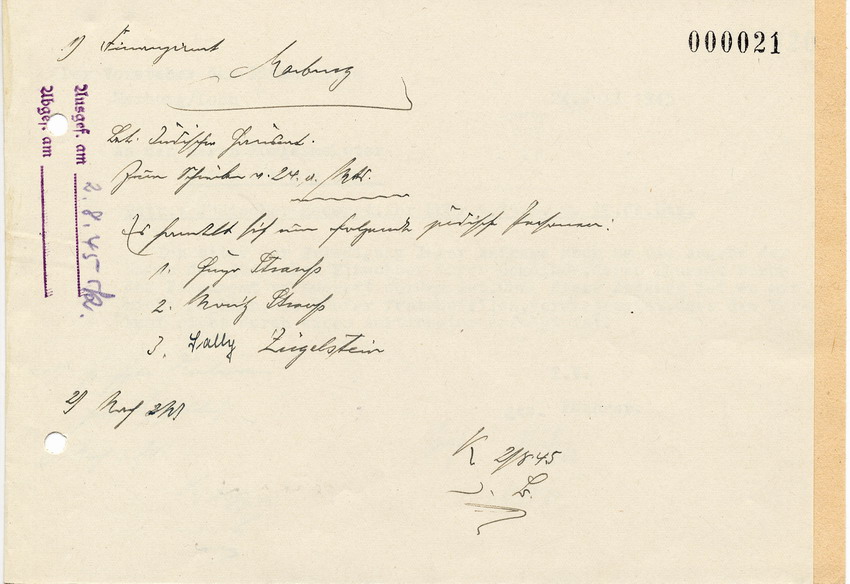 000021
1) Finanzamt
Marburg
Betr. Jüdischer Hausrat.
Zum Schreiben v. 24. v. Mts.
Es handelt sich um folgende jüdische Personen:
1. Hugo Strauß
2. Moritz Strauß
3. Sally Ziegelstein
2) Nach
K 2/8 45
Ausgef. am 2.8.45
Abges. am